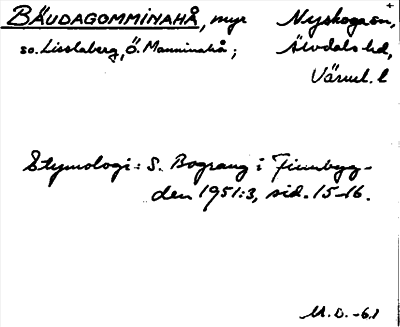 BÄUDAGOMMINAHÅ, myr Nyskoga sn,
so. Lisslaberg, Ö. Manninahå; Älvdals hd,
Värml. l
Etymologi: S. Bograng i Finnbyg-
den 1951:3, sid. 15-16.
M.O. -61